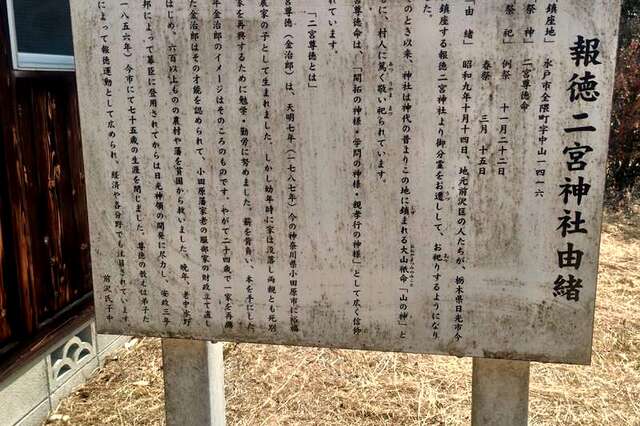 報徳二宮神社由緒
鎮座地」 水戸市全隈町字中山一四一六
祭 神」 二宮尊徳命
祭 祀」 例祭 十一月二十二日
春祭 三月 十五日
「由 緒」 昭和九年十月十四日、地元前沢区の人たちが、栃木県日光市今
鎮座する報徳二宮神社より御分霊をお遷しして、お祀りするようになり
した。
のとき以来、神社は神代の昔よりこの地に鎮まれる大山祇命「山の神」と
もに、村人に篤く敬い祀られています。
宮尊徳命は、「開拓の神様・学問の神様・親孝行の神様」として広く信仰
れています。
「二宮尊徳とは」
宮尊徳(金治郎)は、天明七年(一七八七年)今の神奈川県小田原市に裕福
農家の子として生まれました。しかし幼年時に家は没落し両親とも死別
家を再興するために勉学・勤労に努めました。薪を背負い、本を手にした
年金治郎のイメージはそのころのものです。やがて二十四歳で一家を再興
た金治郎はその才能を認められて、小田原藩家老の服部家の財政立て直し
はじめ、六百以上ものの農村や藩を貧困から救いました。晩年、老中水野
邦によって幕臣に登用されてからは日光神領の開発に尽力し、安政三年
一八五六年)今市にて七十五歳の生涯を閉じました。尊徳の教えは弟子た
によって報徳運動として広められ、経済や各分野でも注目されています。
前沢氏子中